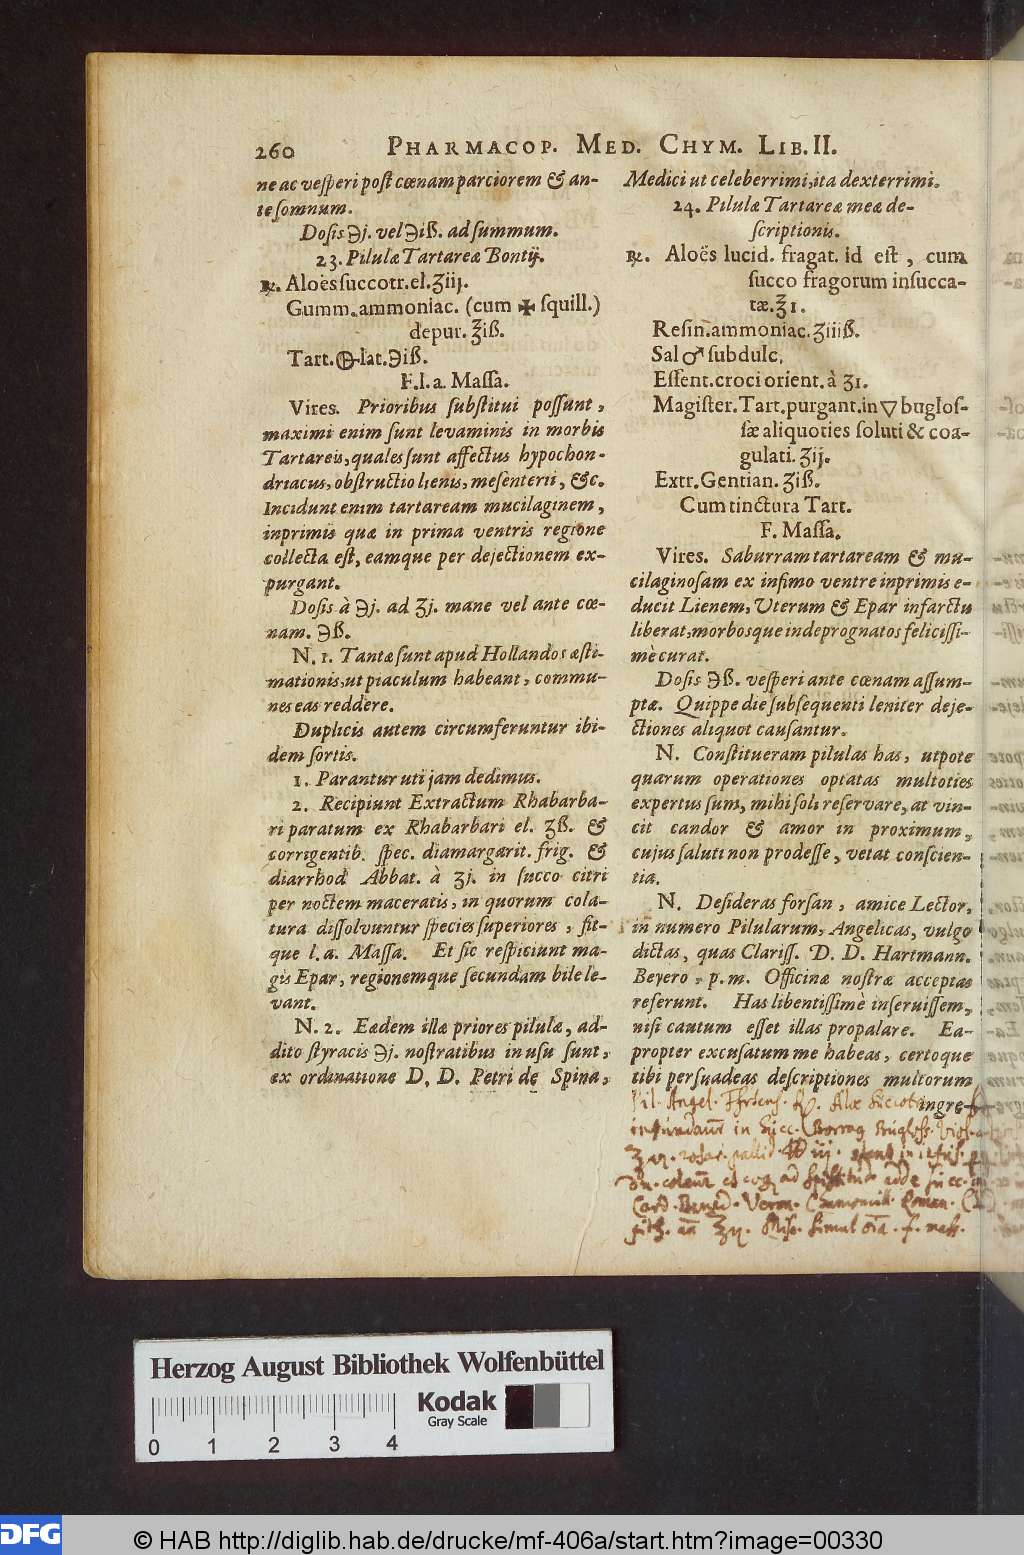 260 PHARMACOP. MED. CHYM. LIB. II.
ne ac vesperi post cœnam parciorem & an-
te somnum.
Dosis ℈j. vel ℈iß. ad summum.
23. Pilulæ Tartareæ Bontij.
℞. Aloës succotr. el. ʒiij.
Gumm. ammoniac. (cum ✠ squill.)
depur. ʒiß.
Tart. lat. ℈iß.
F. l. a. Massa.
Vires. Prioribus substitui possunt,
maximi enim sunt levaminis in morbis
Tartareis, quales sunt affectus hypochon-
driacus, obstructio lienis, mesenterii, &c.
Incidunt enim tartaream mucilaginem,
inprimis quæ in prima ventris regione
collecta est, eamque per dejectionem ex-
purgant.
Dosis à ℈j. ad ʒj. mane vel ante cœ-
nam. ℈ß.
N. 1. Tantæ sunt apud Hollandos æsti-
mationis, ut piaculum habeant, commu-
nes eas reddere.
Duplicis autem circumferuntur ibi-
dem sortis.
1. Parantur uti jam dedimus.
2. Recipiunt Extractum Rhabarba-
ri paratum ex Rhabarbari el. ʒß. &
corrigentib. spec. diamargarit. frig. &
diarrhod Abbat. à ʒj. in succo citri
per noctem maceratis, in quorum cola-
tura dissolvuntur species superiores, fit-
que l. a. Massa. Et sic respiciunt ma-
gis Epar, regionemque secundam bile le-
vant.
N. 2. Eædem illæ priores pilulæ, ad-
dito styracis ℈j. nostratibus in usu sunt,
ex ordinatione D. D. Petri de Spina,
Medici ut celeberrimi, ita dexterrimi.
24. Pilulæ Tartareæ meæ de-
scriptionis.
℞. Aloës lucid. fragat. id est, cum
succo fragorum insucca-
tæ. ʒ1.
Resin. ammoniac. ʒiiiß.
Sal ♂ subdulc.
Essent. croci orient. à ʒ1.
Magister. Tart. purgant. in ▽ buglos-
sæ aliquoties soluti & coa-
gulati. ʒij.
Extr. Gentian. ʒiß.
Cum tinctura Tart.
F. Massa.
Vires. Saburram tartaream & mu-
cilaginosam ex infimo ventre inprimis e-
ducit Lienem, Uterum & Epar infarctu
liberat, morbosque inde prognatos felicissi-
mè curat.
Dosis ℈ß. vesperi ante cœnam assum-
ptæ. Quippe die subsequenti leniter deje-
ctiones aliquot causantur.
N. Constitueram pilulas has, utpote
quarum operationes optatas multoties
expertus sum, mihi soli reservare, at vin-
cit candor & amor in proximum,
cujus saluti non prodesse, vetat conscien-
tia.
N. Desideras forsan, amice Lector,
in numero Pilularum, Angelicas, vulgo
dictas, quas Clariss. D. D. Hartmann.
Beyero, p. m. Officinæ nostræ acceptas
referunt. Has libentissimè inseruissem,
nisi cautum esset illas propalare. Ea-
propter excusatum me habeas, certoque
tibi persuadeas descriptiones multorum
ingre-
Pil. Angel. ℞. Aloe Succotr.
infundatur in Succ. Borrag Bugloss.
rosar. pallid.
ad adde succ.
Card. Bened. Veron. Cammomill. Roman.
Misc. simul f. mass.
Herzog August Bibliothek Wolfenbüttel
Kodak
Gray Scale
0 1 2 3 4
DFG
© HAB http://diglib.hab.de/drucke/mf-406a/start.htm?image=00330